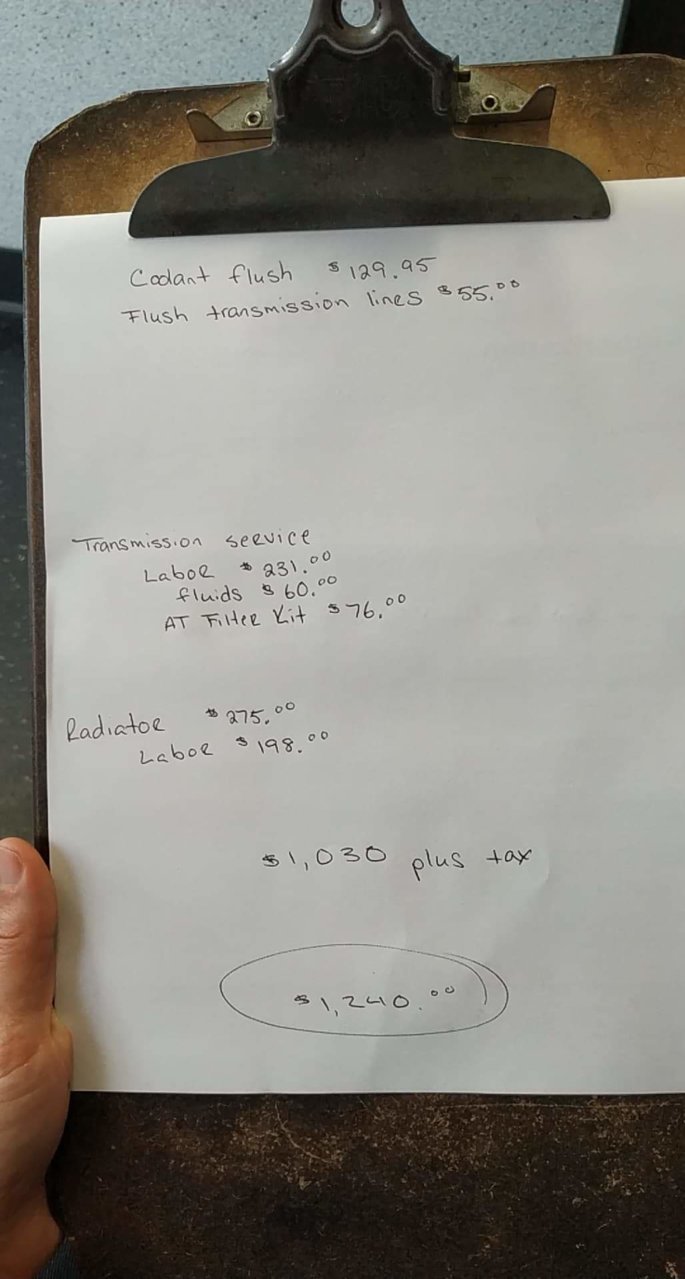 Coolant flush $129.95
Flush transmission lines $55.00
Transmission service
Labor $231.00
fluids $60.00
AT Filter Kit $76.00
Radiator $275.00
Labor $198.00
$1,030 plus tax
$1,240.00